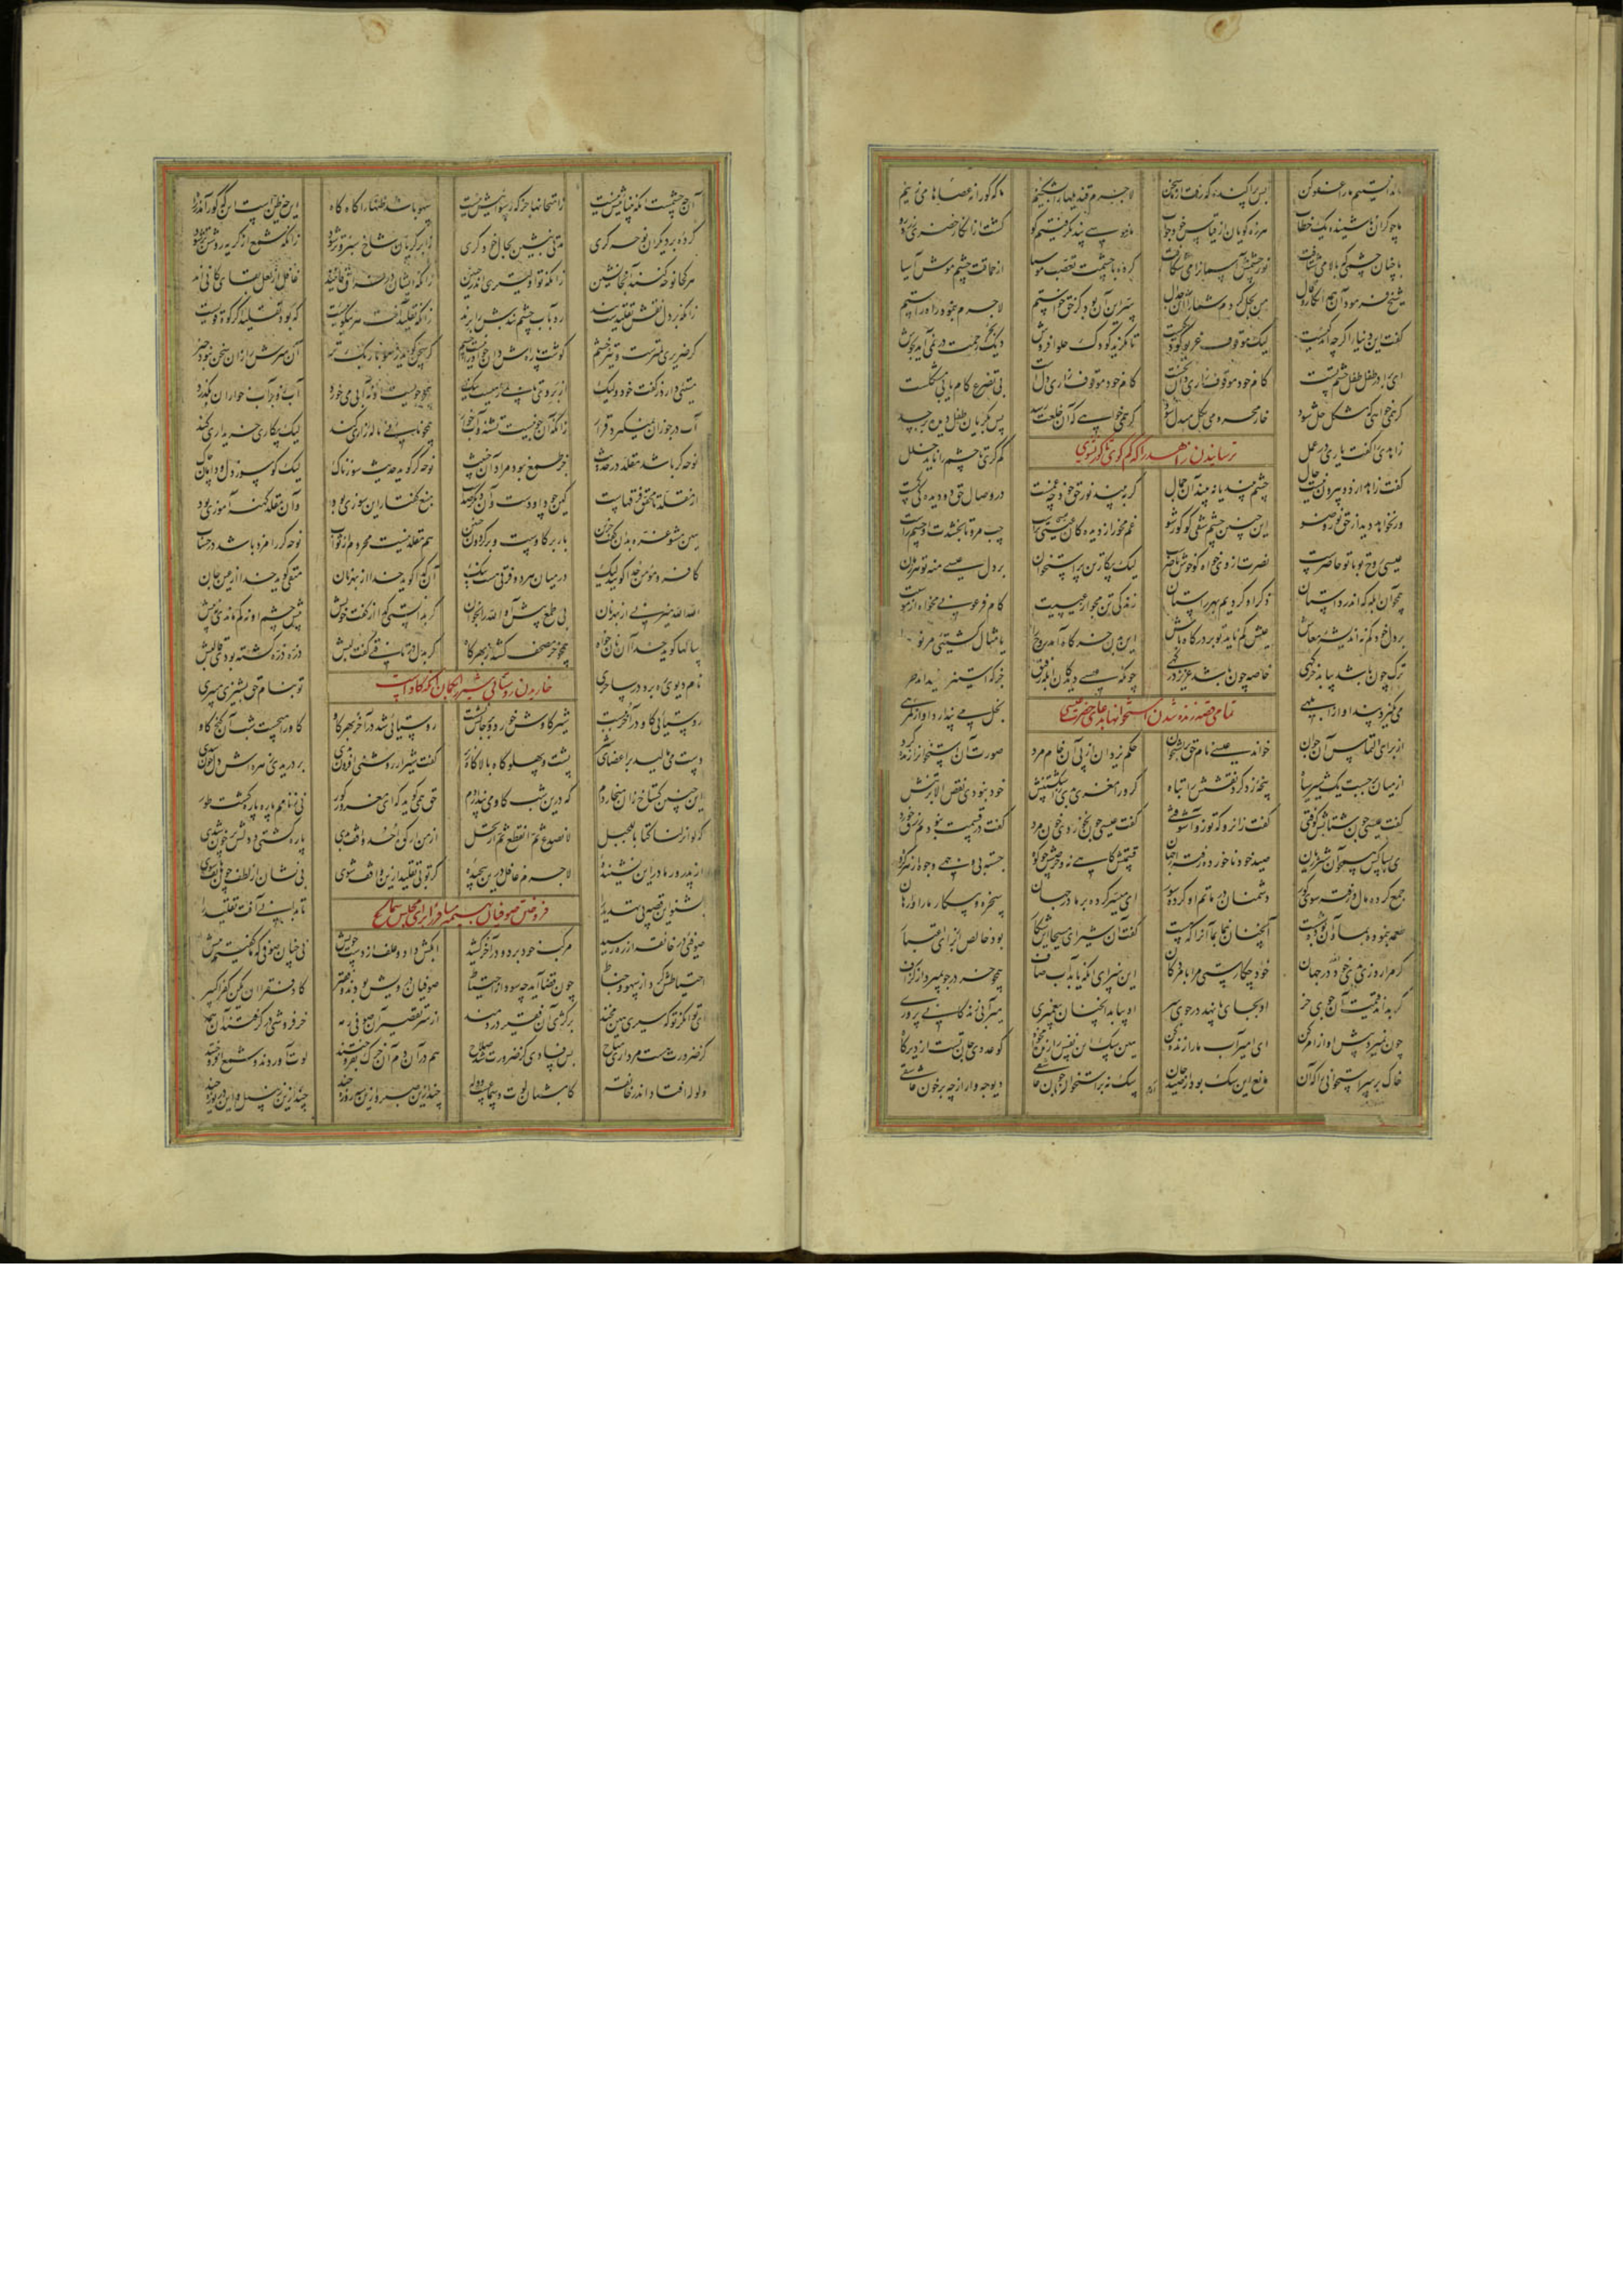 ما ندانستیم ما را عفو کن بس پراکنده که رفت از ما سخن لاجرم قندیلها را بشکنیم ما که کورانه عصاها می زنیم
ما چو کران ناشنیده یک خطاب هرزه گویان از قیاس خود جواب ما ز موسی پند نگرفتیم کو گشت از انکار خضری زردرو
با چنان چشمی که بالا می شتافت نور چشمش آسمانرا می شکافت کرده با چشمت تعصب موسیا از حماقت چشم موش آسیا
شیخ فرمود آن همه گفتار و قال من بحل کردم شما را آن جدال سر این آن بود کز حق خواستم لاجرم بنمود راه راستم
گفت این دینار اگر چه اندکست لیک موقوف غریو کودکست تا نگرید کودک حلوا فروش دیگ رحمت در نمی آید بجوش
ای برادر طفل طفل چشم تست کام خود موقوف زاری دان نخست کام خود موقوف زاری دلست بی تضرع کام یابی مشکلست
گر همی خواهی که مشکل حل شود خار محرومی بگل مبدل شود گر همی خواهی که آن خلعت رسد پس بگریان طفل دیده بر جسد
ترسانیدن زاهد را که کم گری تا کور نشوی
زاهدی را گفت یاری در عمل کم گری تا چشم را ناید خلل
گفت زاهد از دو بیرون نیست حال چشم بیند یا نبیند آن جمال گر ببیند نور حق خود چه غمست در وصال حق دو دیده کی کمست
ور نخواهد دید از حق نور و ضو این چنین چشم شقی گو کور شو غم مخور از دیده کان عیسی تراست چپ مرو تا بخشدت دو چشم راست
عیسی روح تو با تو حاضرست نصرت از وی خواه کو خوش ناصرست لیک بیگار تن پر استخوان بر دل عیسی منه تو هر زمان
همچو آن ابله که اندر داستان ذکر او کردیم بهر راستان زندگی تن مجو از عیسیت کام فرعونی مخواه از موسیت
بر دل خود کم نه اندیشه معاش عیش کم ناید تو بر درگاه باش این بدن خرگاه آمد روح را یا مثال کشتیی مر نوح را
ترک چون باشد بیابد خرگهی خاصه چون باشد عزیز درگهی چونکه عیسی دید کان ابله رفیق جز که استیزه نمیداند
می نگیرد پند او از ابلهی بخل می پندارد او از گمرهی
تمامی قصه زنده شدن استخوانها بدعای حضرت عیسی
از برای التماس آن جوان خواند عیسی نام حق بر استخوان حکم یزدان از پی آن خام مرد صورت آن استخوانرا زنده کرد
از میان بر جست یک شیر سیاه پنجه زد کرد نقشش را تباه گر ورا مغزی بدی ز اشکستنش خود نبودی نقص الا بر تنش
گفت عیسی چون شتابش کوفتی گفت زانرو که تو زو آشوفتی گفت عیسی چون نخوردی خون مرد گفت در قسمت نبودم رزق خورد
ای بسا کس همچو آن شیر ژیان صید خود ناخورده رفته از جهان قسمتش کاهی نه و حرصش چو کوه جسته بی وجهی وجوه از هر گروه
جمع کرده مال و رفته سوی گور دشمنان در ماتم او کرده سور ای میسر کرده بر ما در جهان سخره و بیگار ما را وارهان
طعمه بنموده بما وان بوده شست آنچنان بنما بما آنرا که هست گفت آن شیر ای مسیحا این شکار بود خالص از برای اعتبار
گر مرا روزی بدی خود در جهان خود چه کارستی مرا با مردگان این سزای آنکه یابد آب صاف همچو خر در جو بمیزد از گزاف
گر بداند قیمت آن جوی خر او بجای پا نهد در جوی سر او بیابد آنچنان پیغمبری میر آبی زندگانی پروری
چون نمیرد پیش او از امر کن ای امیر آب ما را زنده کن هین سگ این نفس را زنده مخواه کو عدو جان تست از دیرگاه
خاک بر سر استخوانی را که آن مانع این سگ بود از صید جان سگ نه بر استخوان چون عاشقی دیوچه وار از چه بر خون عاشقی
آن چه چشمست آنکه بیناییش نیست ز امتحانها جز که رسواییش نیست سهو باشد ظنها را گاه گاه این چه ظنست این که کور آمد ز راه
کرده بر دیگران نوحه گری مدتی بنشین بحال خود گری ز ابر گریان شاخ سبز و تر شود زانکه شمع از گریه روشنتر شود
هر کجا نوحه کنند آنجا نشین زانکه تو اولیتری اندر حنین زانکه ایشان در فراق فانیند غافل از لعل بقای کانیند
زانکه بر دل نقش تقلیدست بند رو به آب چشم بندش را برند زانکه تقلید آفت هر نیکویست که بود تقلید اگر کوه قویست
گر ضریری لمترست و تیز خشم گوشت پاره ش دان چو او را نیست چشم گر سخن گوید ز مو باریک تر آن سرش را زان سخن نبود خبر
مستیی دارد ز گفت خود ولیک از بر وی تا بمی راهیست نیک همچو جویست او نه آبی می خورد آب ازو بر آب خواران بگذرد
آب در جو زان نمیگیرد قرار زانکه آن جو نیست تشنه و آب خوار همچو نایی ناله زاری کند لیک بیگاری خریداری کند
نوحه گر باشد مقلد در حدیث جز طمع نبود مراد آن خبیث نوحه گر گوید حدیث سوزناک لیک کو سوز دل و دامان چاک
از مقلد تا محقق فرقهاست کین چو داودست و آن دیگر صداست منبع گفتار این سوزی بود وان مقلد کهنه آموزی بود
هین مشو غره بدان گفت حزین بار بر گاوست و بر گردون حنین هم مقلد نیست محروم از ثواب نوحه گر را مزد باشد در حساب
کافر و مؤمن خدا گویند لیک درمیان هر دو فرقی هست نیک آن گدا گوید خدا از بهر نان متقی گوید خدا از عین جان
الله الله میزنی از بهر نان بی طمع پیش آ و الله را بخوان گر بدانستی گدا از گفت خویش پیش چشم او نه کم ماندی نه بیش
سالها گوید خدا آن نان خواه همچو خر مصحف کشد از بهر کاه گر بدل در تافتی گفت لبش ذره ذره گشته بودی قالبش
نام دیوی ره برد در ساحری تو بنام حق پشیزی میبری
خاریدن روستایی شیر را بگمان آنکه گاو است
روستایی گاو در آخر ببست شیر گاوش خورد و بر جایش نشست روستایی شد در آخر بهر گاو گاو را میجست شب آن کنج کاو
دست میمالید بر اعضای شیر پشت و پهلو گاه بالا گاه زیر گفت شیر ار روشنی افزون بدی بر دریدی زهره اش دل خون شدی
این چنین گستاخ زان میخاردم که درین شب گاو می پنداردم حق همی گوید که ای مغرور کور نی ز نامم پاره پاره گشت طور
که لو انزلنا کتابا للجبل لانصدع ثم انقطع ثم ارتحل از من ار کوه احد واقف بدی پاره گشتی و دلش پر خون شدی
از پدر وز مادر این بشنیده لاجرم غافل درین پیچیده گر تو بی تقلید ازین واقف شوی بی نشان از لطف چون هاتف شوی
بشنو این قصه پی تهدید را تا بدانی آفت تقلید را
فروختن صوفیان بهیمه مسافر را برای مجلس سماع
صوفیی در خانقاه از ره رسید مرکب خود برد و در آخر کشید آبکش داد و علف از دست خویش نی چنان صوفی که ما گفتیم پیش
احتیاطش کرد از سهو و خباط چون قضا آید چه سود از احتیاط صوفیان درویش بودند و فقیر کاد فقرا ان یکن کفرا کبیر
ای توانگر تو که سیری هین مخند بر کژی آن فقیر دردمند از سر تقصیر آن صوفی رمه خر فروشی در گرفتند آن همه
کز ضرورت هست مرداری مباح بس فسادی کز ضرورت شد صلاح هم در آن دم آن خرک بفروختند لوت آوردند و شمع افروختند
ولوله افتاد اندر خانقه کامشبان لوت و سماعست و وله چند ازین صبر و ازین سه روزه چند چند ازین زنبیل و این دریوزه چند